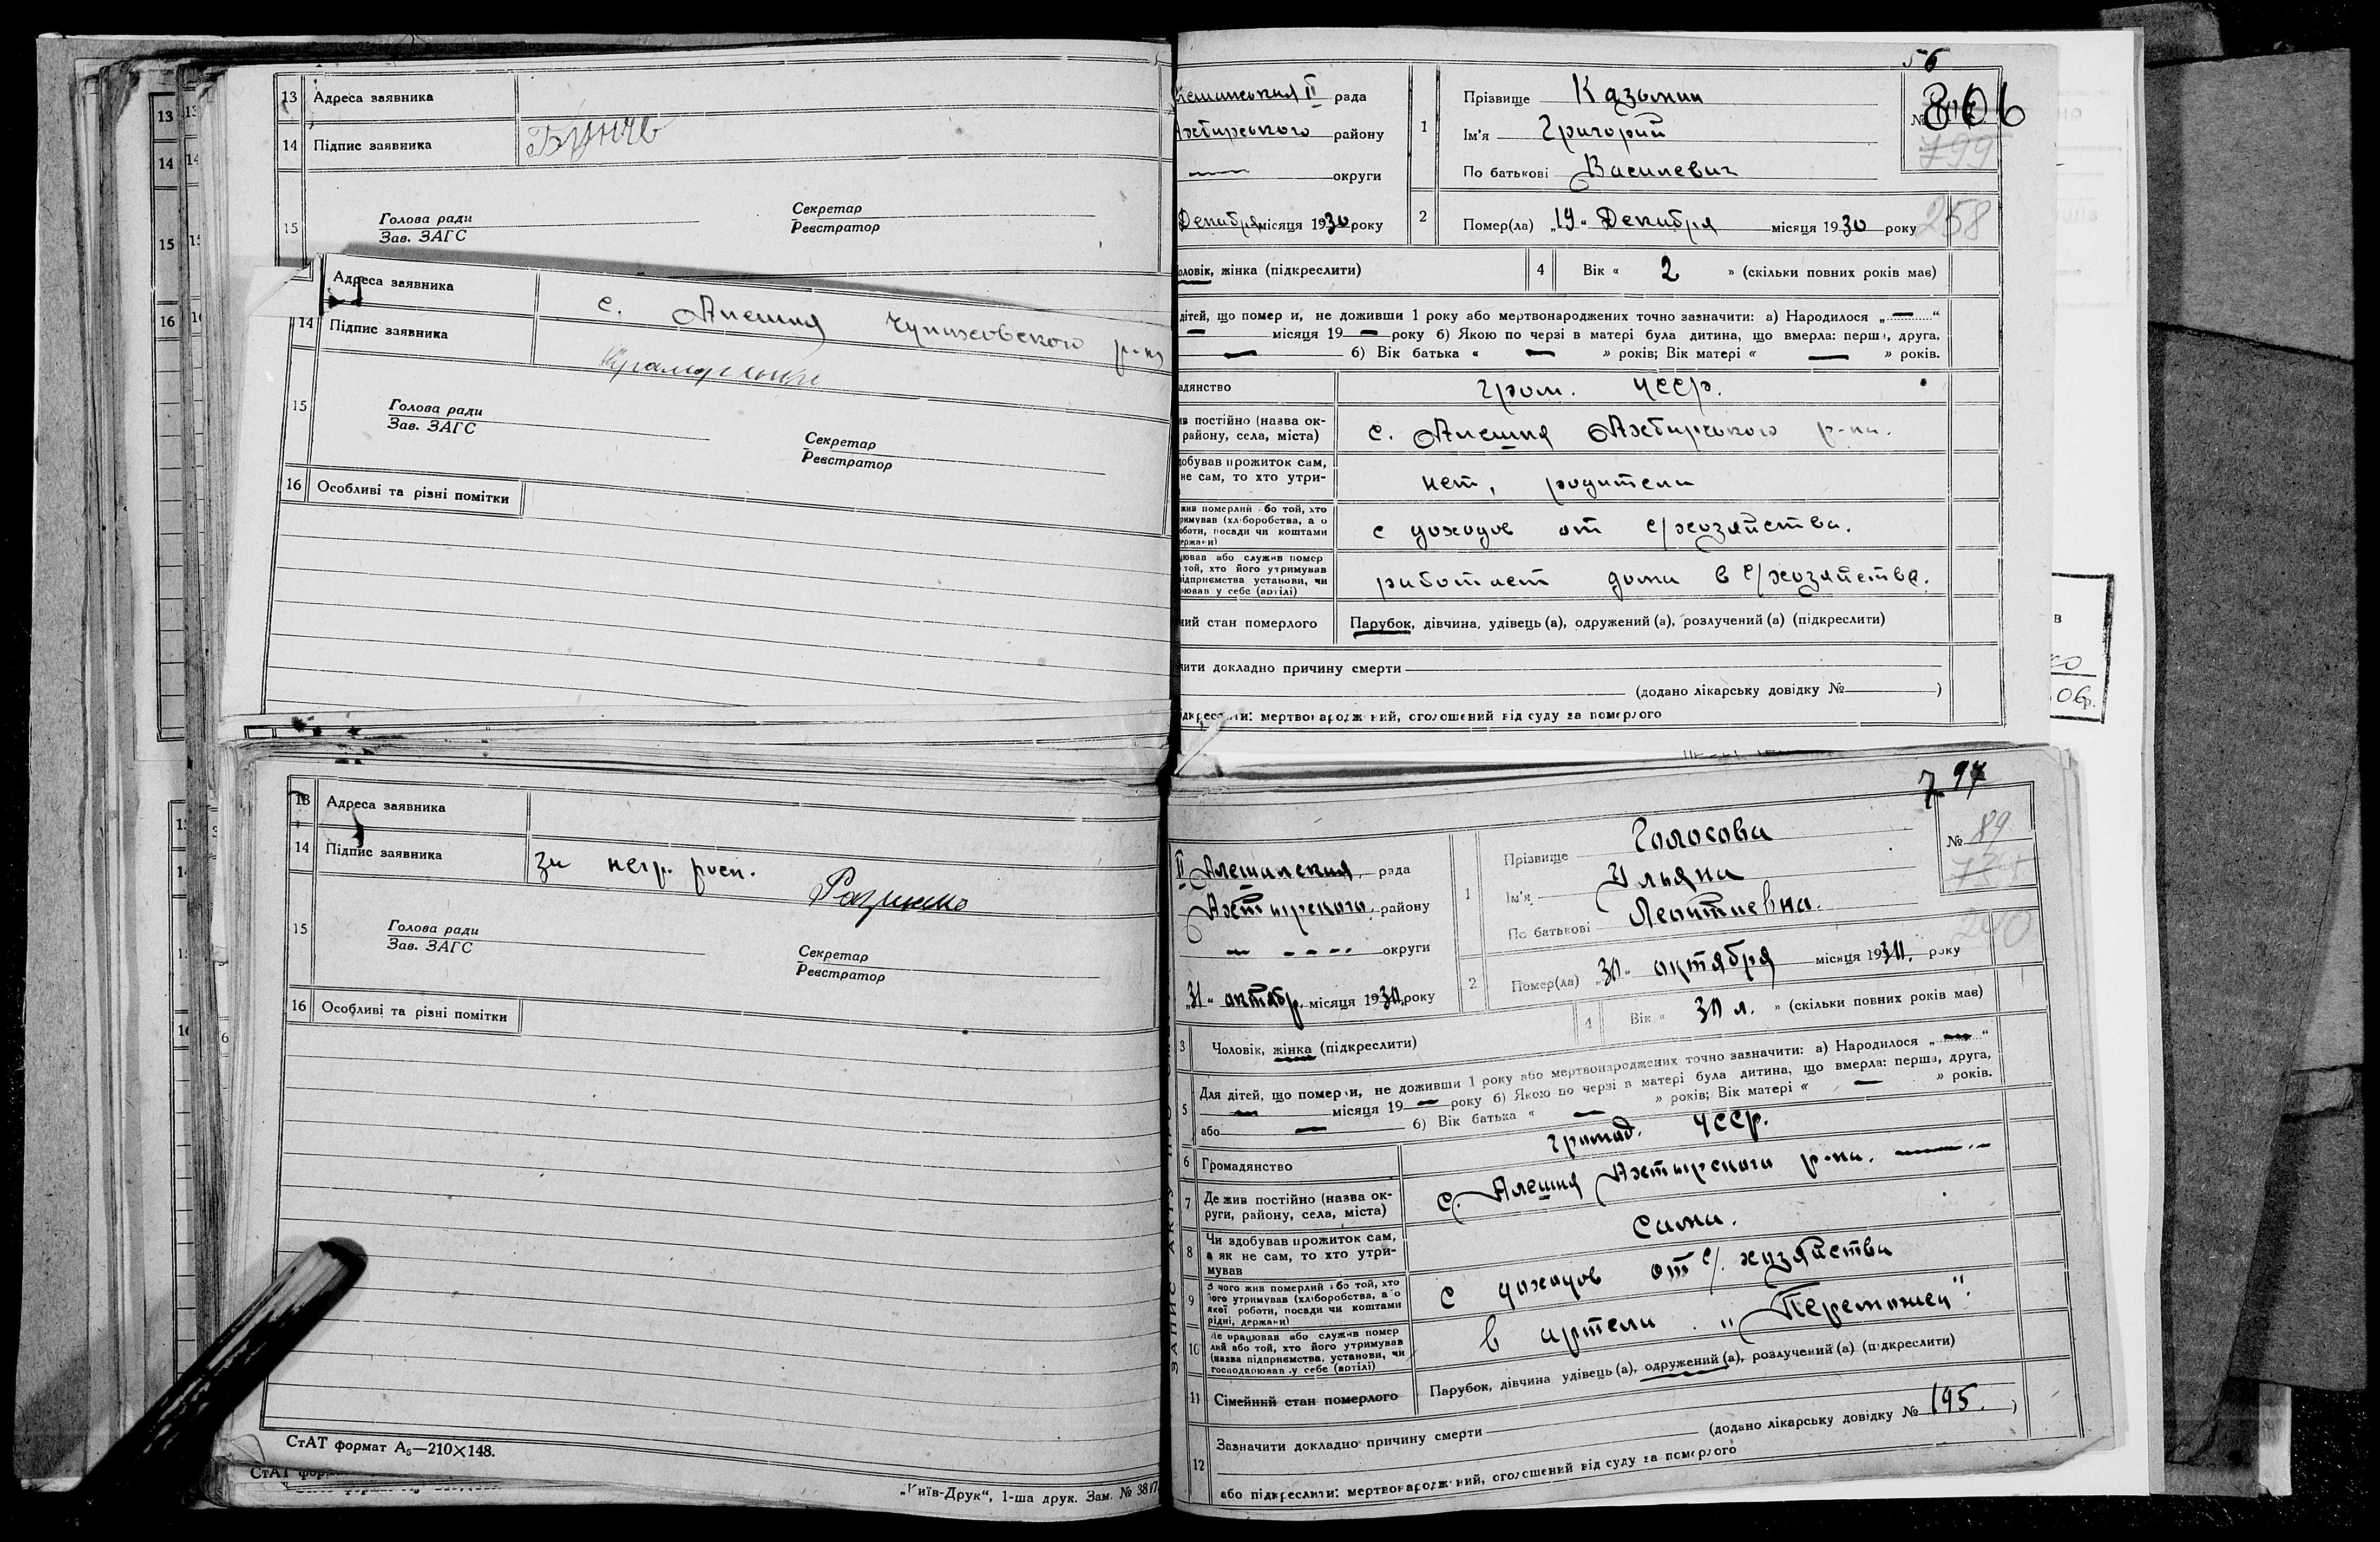 13 Адреса заявника
14 Підпис заявника
15 Голова ради
Зав. ЗАГС
Секретар
Реєстратор
Адреса заявника с. Алешня Чупиховского р-на
14 Підпис заявника
15 Голова ради
Зав. ЗАГС
Секретар
Реєстратор
16 Особливі та різні помітки
13 Адреса заявника
14 Підпис заявника за негр. росп.
15 Голова ради
Зав. ЗАГС
Секретар
Реєстратор
16 Особливі та різні помітки
СтАТ формат А5—210×148.
„Київ-Друк“, 1-ша друк. Зам. № 3817
56
рада
району
округи
Декабря місяця 1930 року
1 Прізвище Казьмин
Ім'я Григорий
По батькові Василевич
№ 806
799
2 Помер(ла) „19“ Декабря місяця 1930 року
258
оловік, жінка (підкреслити)
4 Вік « 2 » (скільки повних років має)
дітей, що померли, не доживши 1 року або мертвонароджених точно зазначити: а) Народилося „ — “
— місяця 19 — року б) Якою по черзі в матері була дитина, що вмерла: перша, друга,
— б) Вік батька « — » років; Вік матері « — » років.
адянство гром. УССР.
ив постійно (назва ок-
району, села, міста) с. Алешня Ахтирського р-на.
добував прожиток сам,
не сам, то хто утри- нет, родители
жив померлий або той, хто
римував (хліборобства, а о
оботи, посади чи коштами
ержави) с доходов от с/хозяйства.
цював або служив помер
той, хто його утримував
підприємства установи, чи
рював у себе (артілі) работает дома в с/хозяйстве.
ний стан померлого Парубок, дівчина, удівець (а), одружений (а), розлучений (а) (підкреслити)
чити докладно причину смерти
(додано лікарську довідку № )
ідкреслити: мертвонароджений, оголошений від суду за померлого
797
II Алешанская рада
Ахтырского району
— - - - - округи
„31“ октябр. місяця 1930 року
1 Прізвище Голосова
Ім'я Ульяна
По батькові Леонтиевна.
№ 89
2 Помер(ла) „30“ октября місяця 1930. року
240
3 Чоловік, жінка (підкреслити)
4 Вік « 30 л. » (скільки повних років має)
5 Для дітей, що померли, не доживши 1 року або мертвонароджених точно зазначити: а) Народилося „ — “
— місяця 19 — року б) Якою по черзі в матері була дитина, що вмерла: перша, друга,
або — б) Вік батька « — » років; Вік матері « — » років.
6 Громадянство громад. УССР.
7 Де жив постійно (назва ок-
руги, району, села, міста) с. Алешня Ахтырского р-на.
8 Чи здобував прожиток сам,
а як не сам, то хто утри-
мував сама.
9 З чого жив померлий або той, хто
його утримував (хліборобства, а о
якої роботи, посади чи коштами
рідні, держави) с доходов от с/хозяйства
10 Де працював або служив помер
лий або той, хто його утримував
(назва підприємства, установи, чи
господарював у себе (артілі) в артели „Переможец“.
11 Сімейний стан померлого Парубок, дівчина удівець (а), одружений (а), розлучений (а) (підкреслити)
12 Зазначити докладно причину смерти
(додано лікарську довідку № 195. )
або підкреслити: мертвонароджений, оголошений від суду за померлого